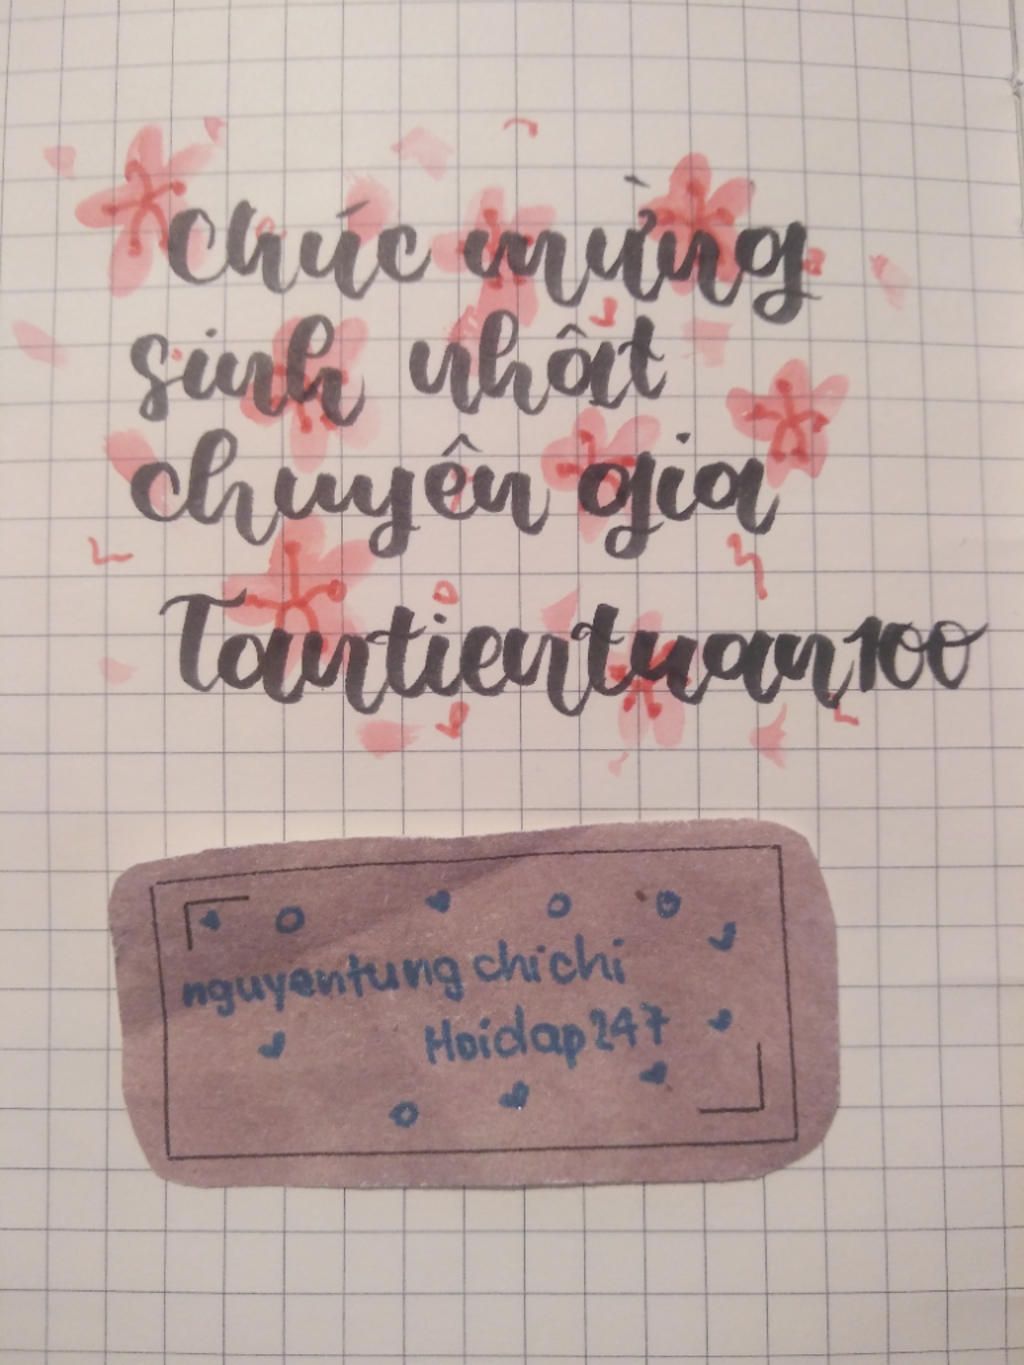 Chúc mừng
sinh nhật
chuyên gia
Tantientuan100
nguyentungchichi
Hoidap247